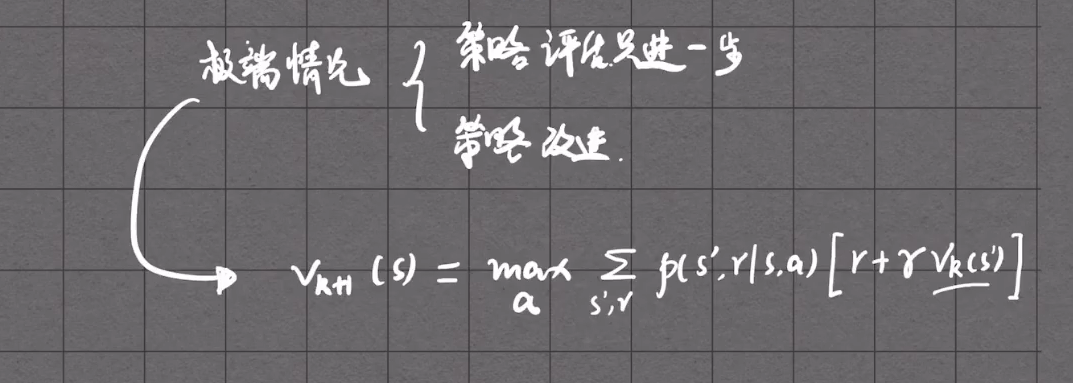 极端情况 { 策略评估只进一步
策略改进.
v_{k+1}(s) = max_a Σ_{s',r} p(s',r|s,a)[r+γv_k(s')]